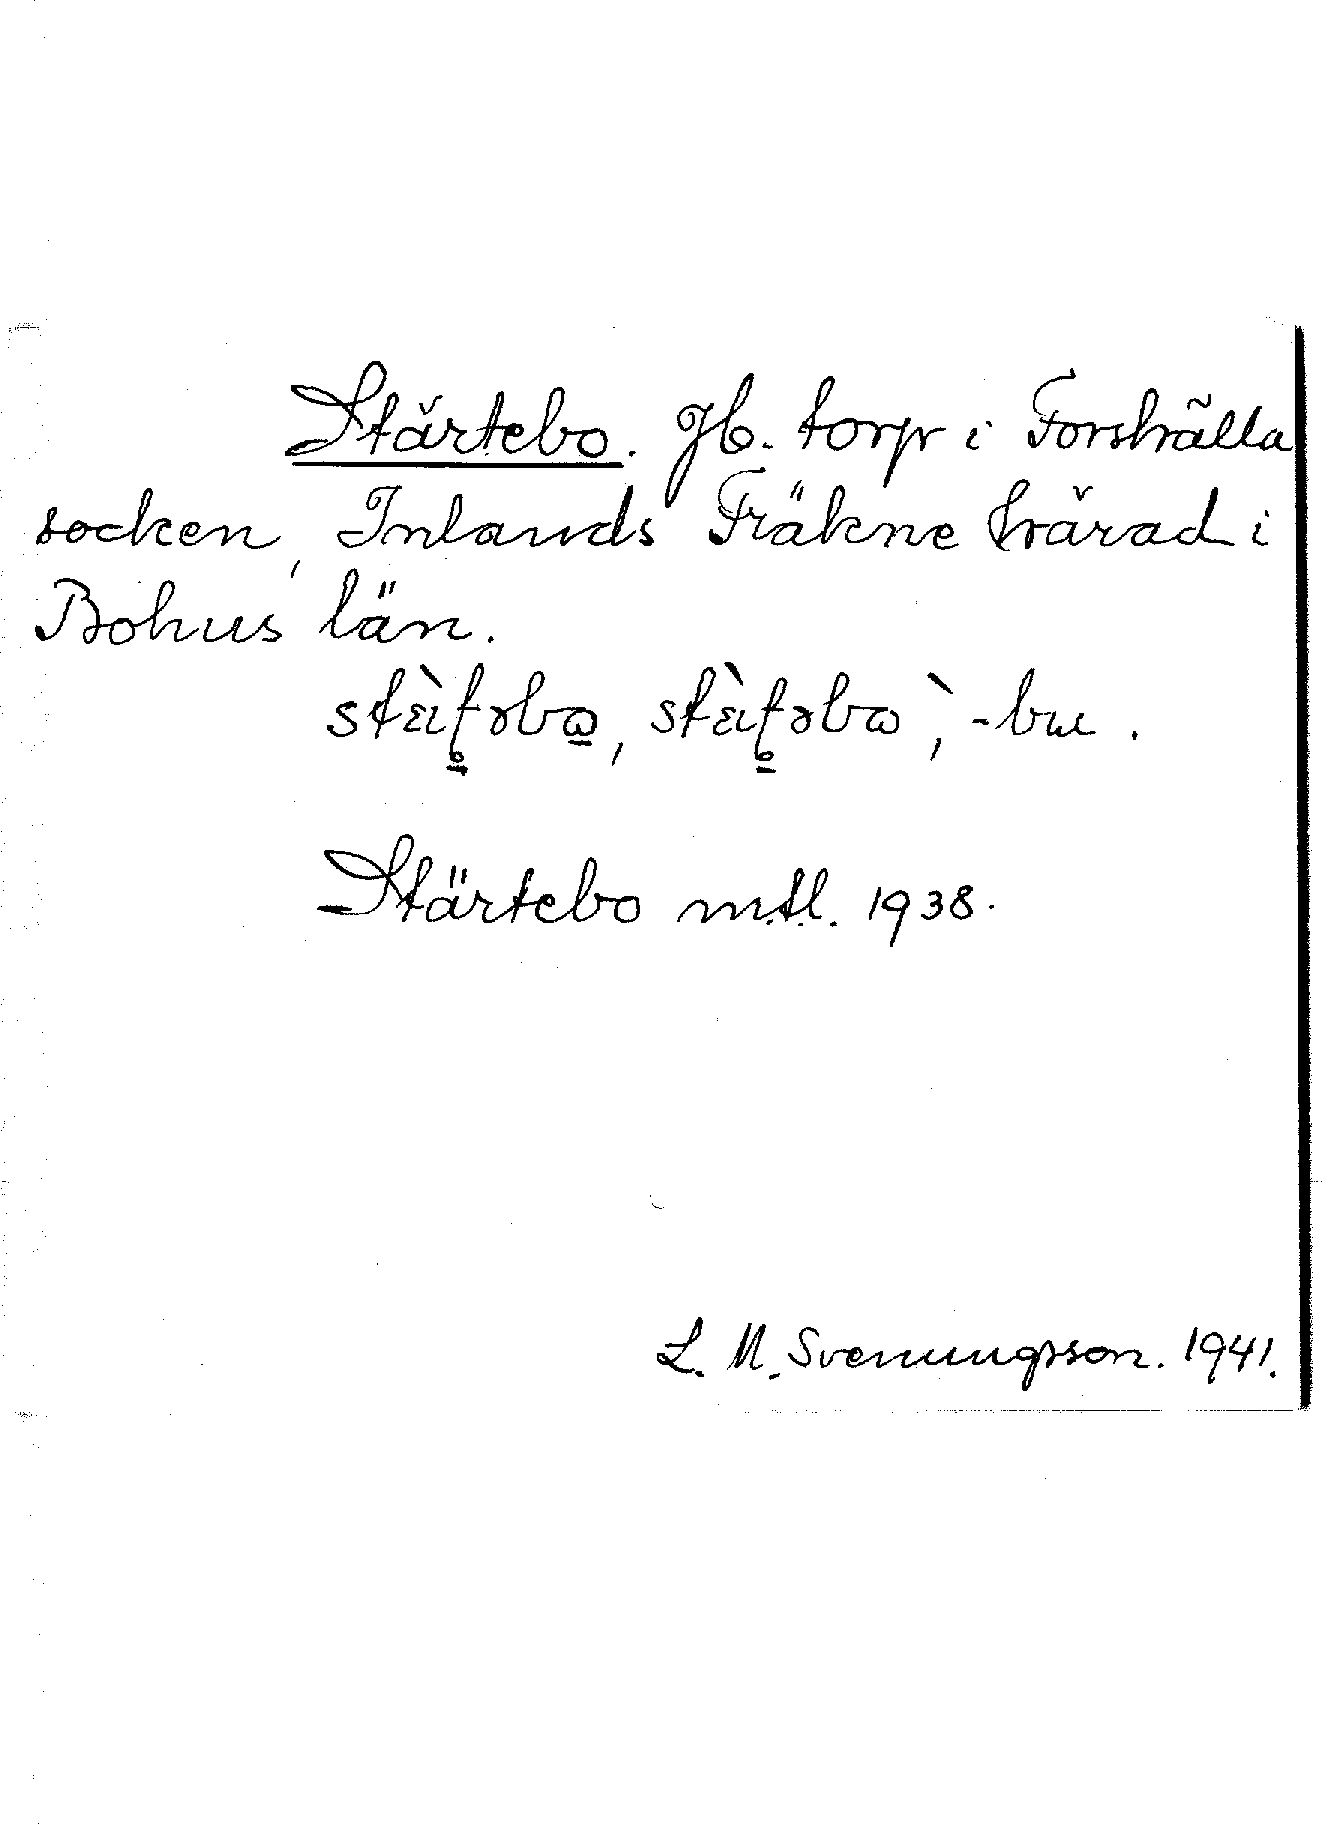 Stärtebo. Jb. torp i Forshälla
socken, Inlands Fräkne härad i
Bohus län.
Stärtebo mtl. 1938.
L. M. Svenungsson. 1941.